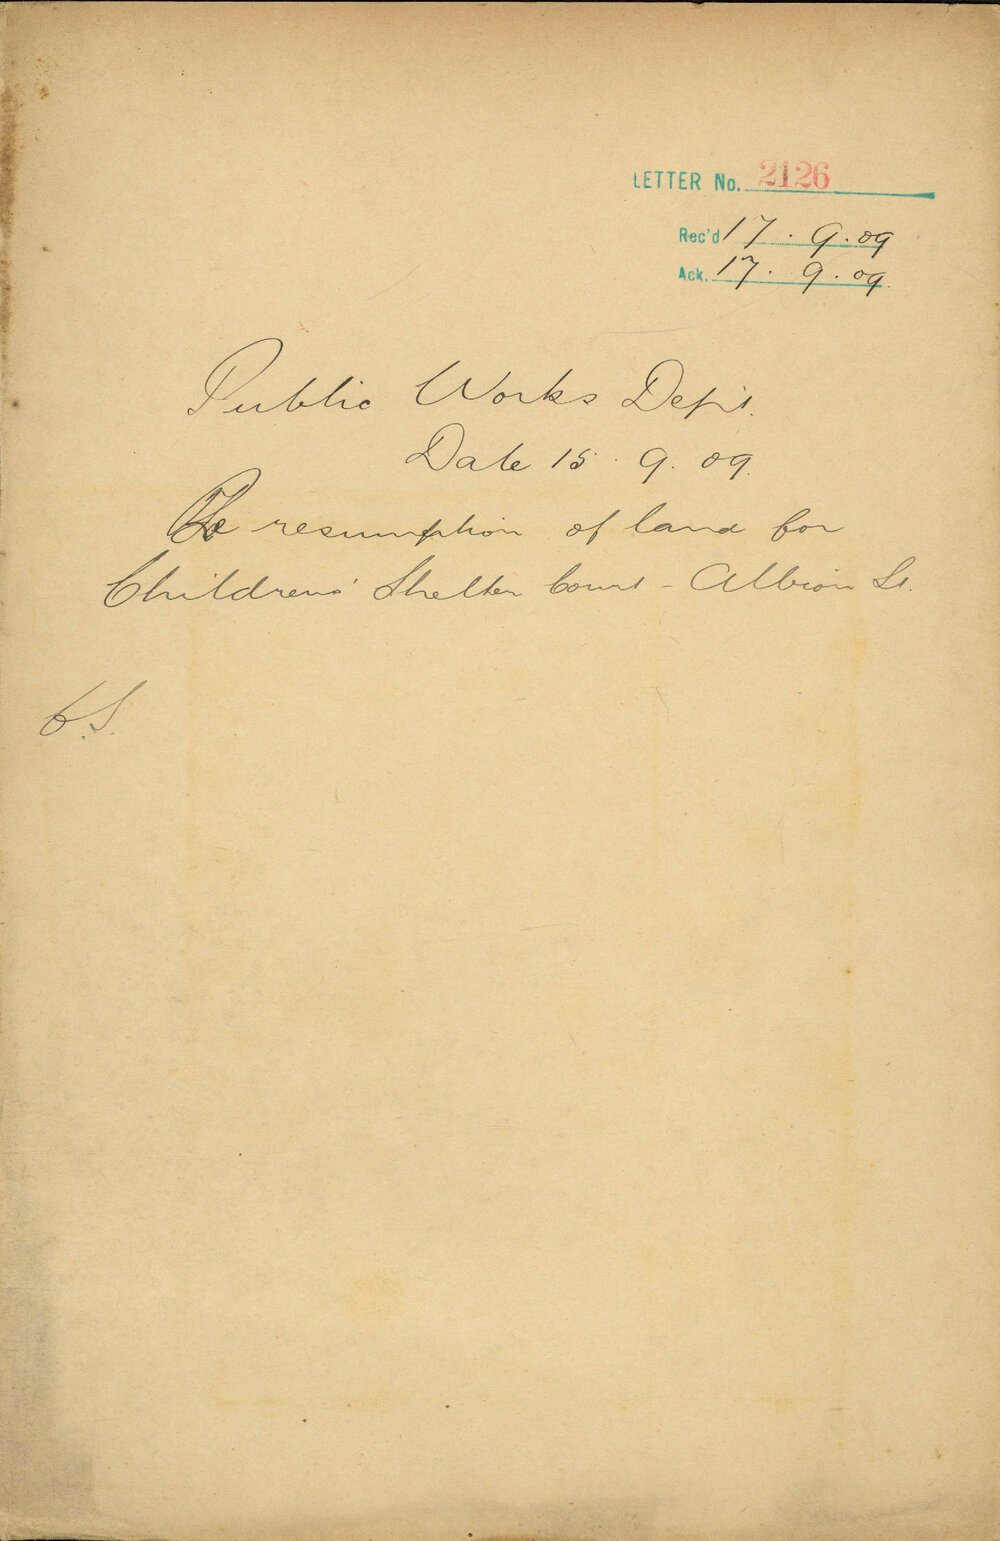 LETTER No. 2126
Rec'd 17. 9. 09
Ack. 17. 9. 09.
Public Works Dept.
Date 15. 9. 09.
Re resumption of land for
Childrens' Shelter Court - Albion St.
C.S.